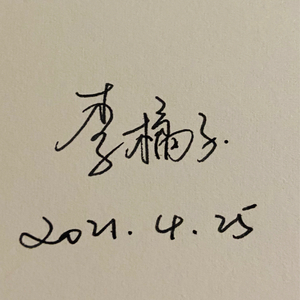 李橘子.
2021.4.25